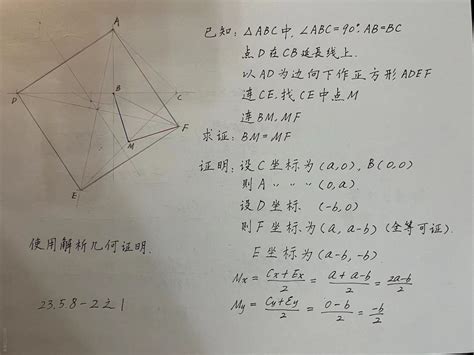 已知: △ABC中, ∠ABC=90°. AB=BC
点D在CB延长线上.
以AD为边向下作正方形ADEF
连CE, 找CE中点M
连BM, MF
求证: BM=MF
证明: 设C坐标为(a,0), B(0,0)
则A 〃 〃 〃 (0,a).
设D坐标 (-b,0)
则F坐标为(a, a-b) (全等可证).
E坐标为(a-b, -b)
Mx = (Cx+Ex)/2 = (a+a-b)/2 = (2a-b)/2
My = (Cy+Ey)/2 = (0-b)/2 = -b/2
A
D
B
C
F
M
E
使用解析几何证明.
23.5.8-2之1